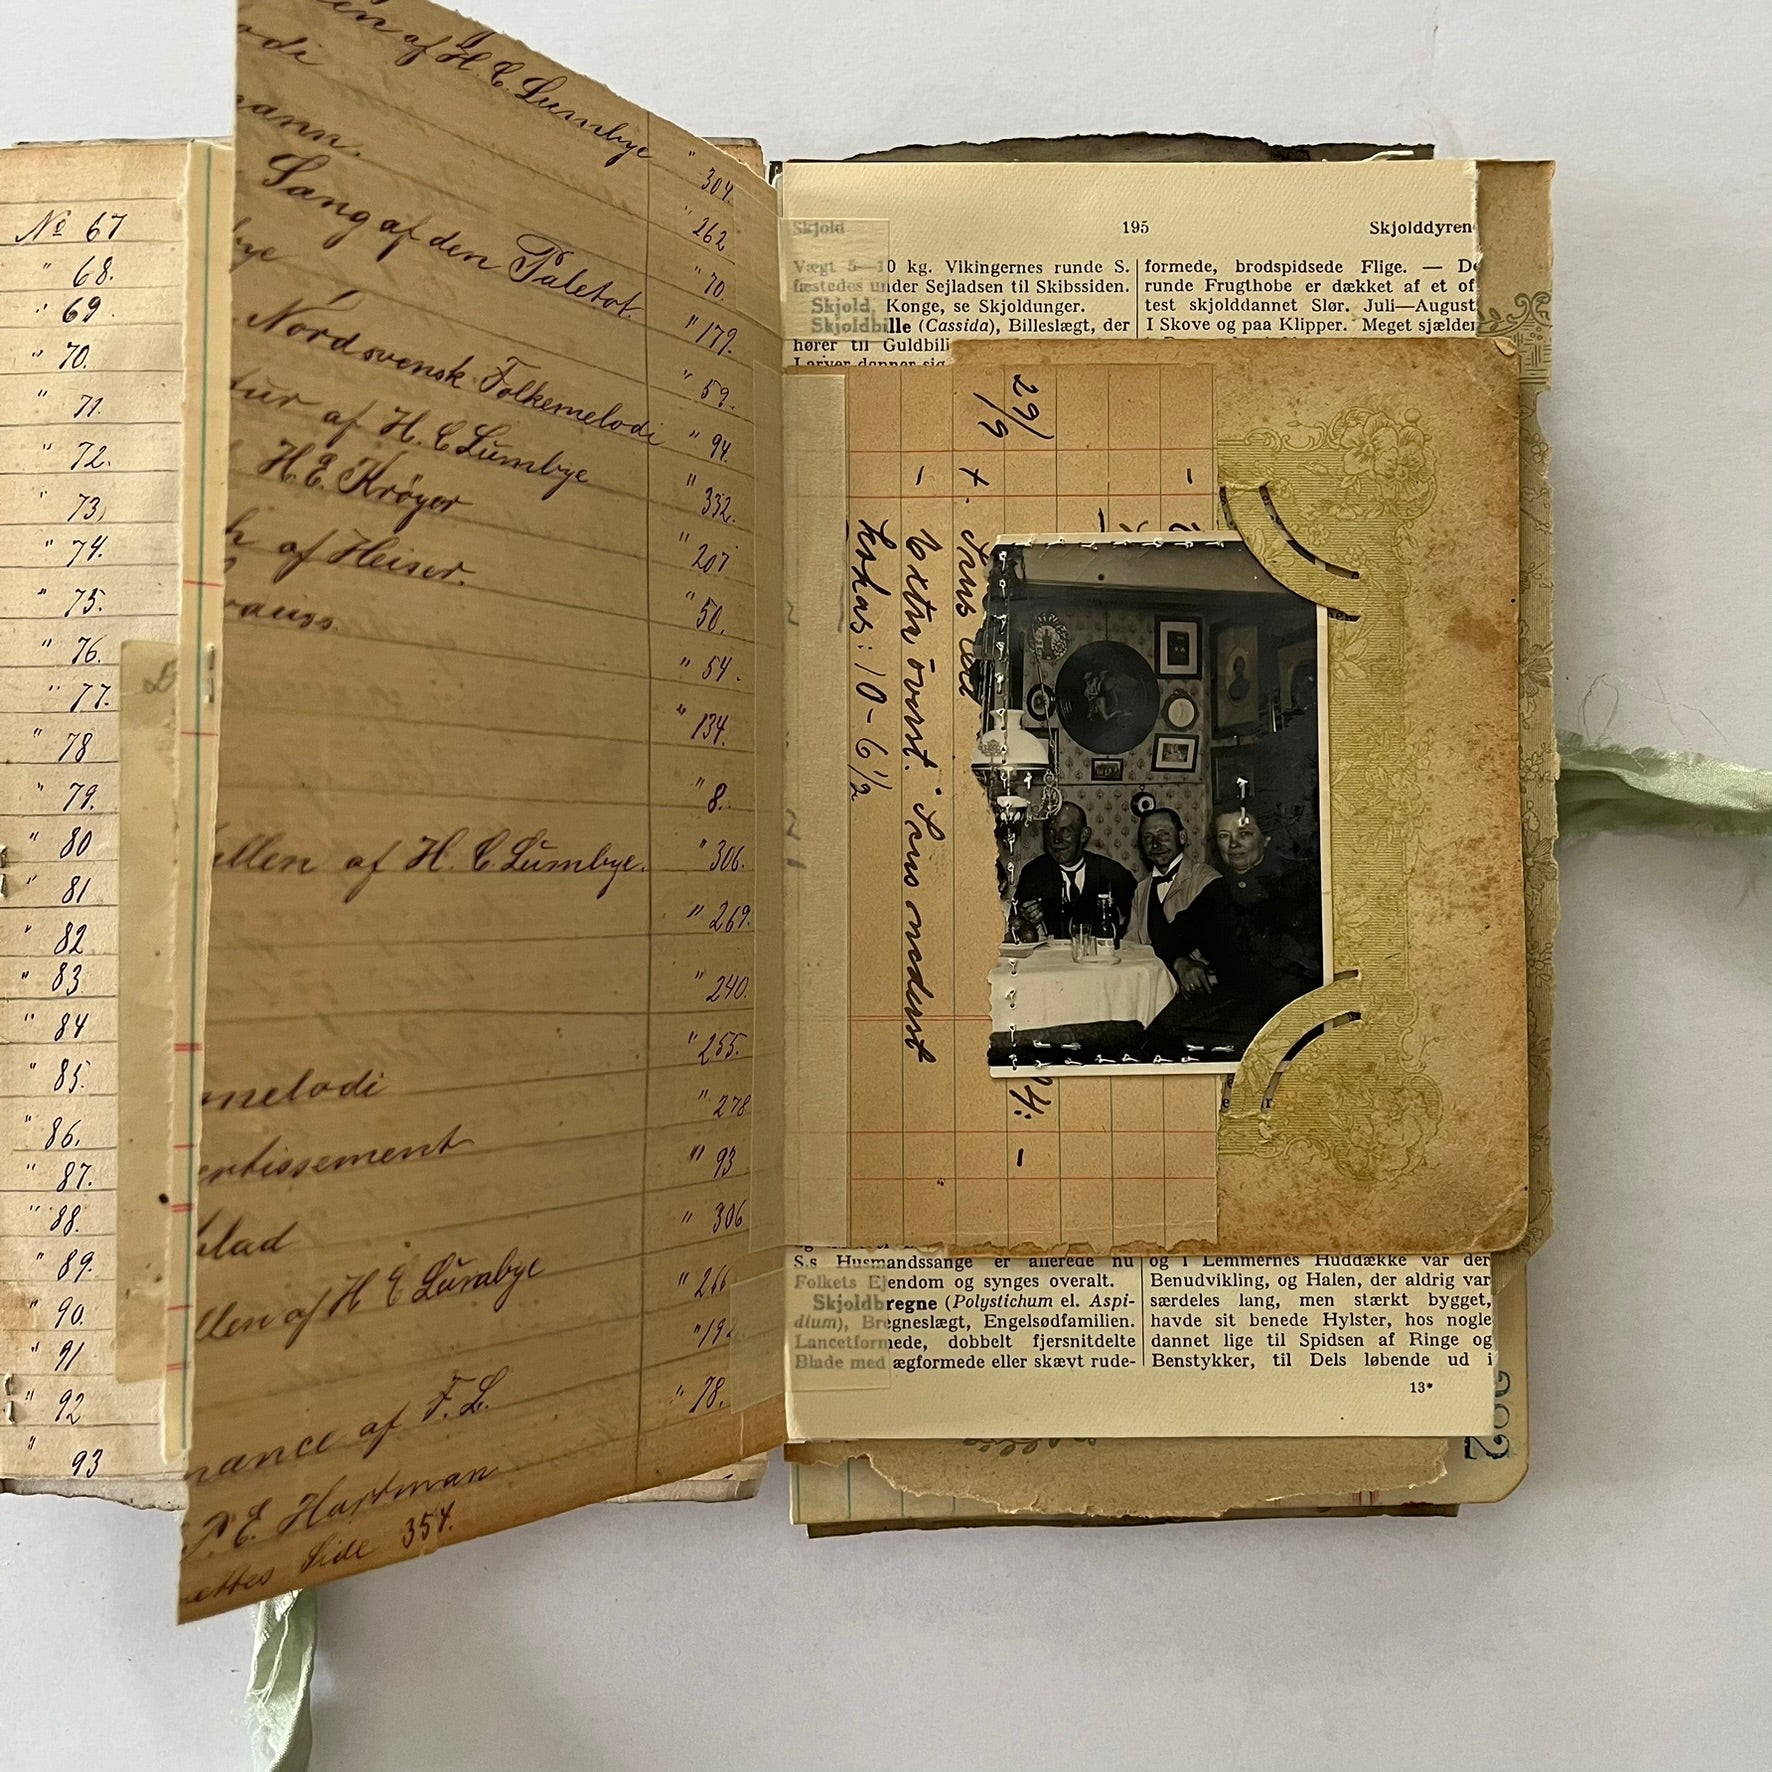 No 67
" 68.
" 69.
" 70.
" 71.
" 72.
" 73,
" 74.
" 75.
" 76.
" 77.
" 78
" 79.
" 80
" 81
" 82
" 83
" 84
" 85.
" 86.
" 87.
" 88.
" 89.
" 90.
" 91
" 92
" 93
af H. C. Lumbye " 304.
odi " 262
mann. " 70.
Sang af den Paletot. " 179.
bye " 59.
Nordsvensk Folkemelodi " 94.
tur af H. C Lumbye " 332.
H. E. Krøyer " 207
h af Heiser. " 50.
rauss. " 54.
" 134.
" 8.
allen af H. C Lumbye. " 306.
" 269.
" 240.
" 255.
melodi " 278
ertissement " 93
blad " 306
llen af H C Lumbye " 266
" 192
mance af F. L. " 78.
P. E. Hartman
ettes Side 354.
Skjold 195 Skjolddyren
Vægt 5—10 kg. Vikingernes runde S.
fæstedes under Sejladsen til Skibssiden.
Skjold, Konge, se Skjoldunger.
Skjoldbille (Cassida), Billeslægt, der
hører til Guldbil
Larver danner sig
formede, brodspidsede Flige. — De
runde Frugthobe er dækket af et of
test skjolddannet Slør. Juli—August
I Skove og paa Klipper. Meget sjælden
29/9
+.
Extr. överst.
10 - 6 1/2
S.s Husmandssange er allerede nu
Folkets Ejendom og synges overalt.
Skjoldbregne (Polystichum el. Aspi-
dium), Bregneslægt, Engelsødfamilien.
Lancetformede, dobbelt fjersnitdelte
Blade med ægformede eller skævt rude-
og i Lemmernes Huddække var der
Benudvikling, og Halen, der aldrig var
særdeles lang, men stærkt bygget,
havde sit benede Hylster, hos nogle
dannet lige til Spidsen af Ringe og
Benstykker, til Dels løbende ud i
13*